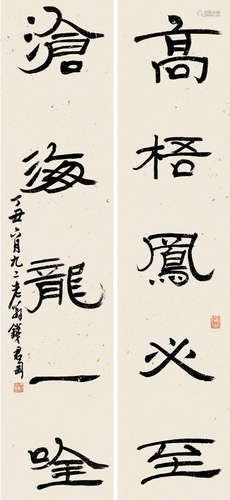 高梧鳳必至
滄海龍一唫
丁丑六月九二老翁錢君匋